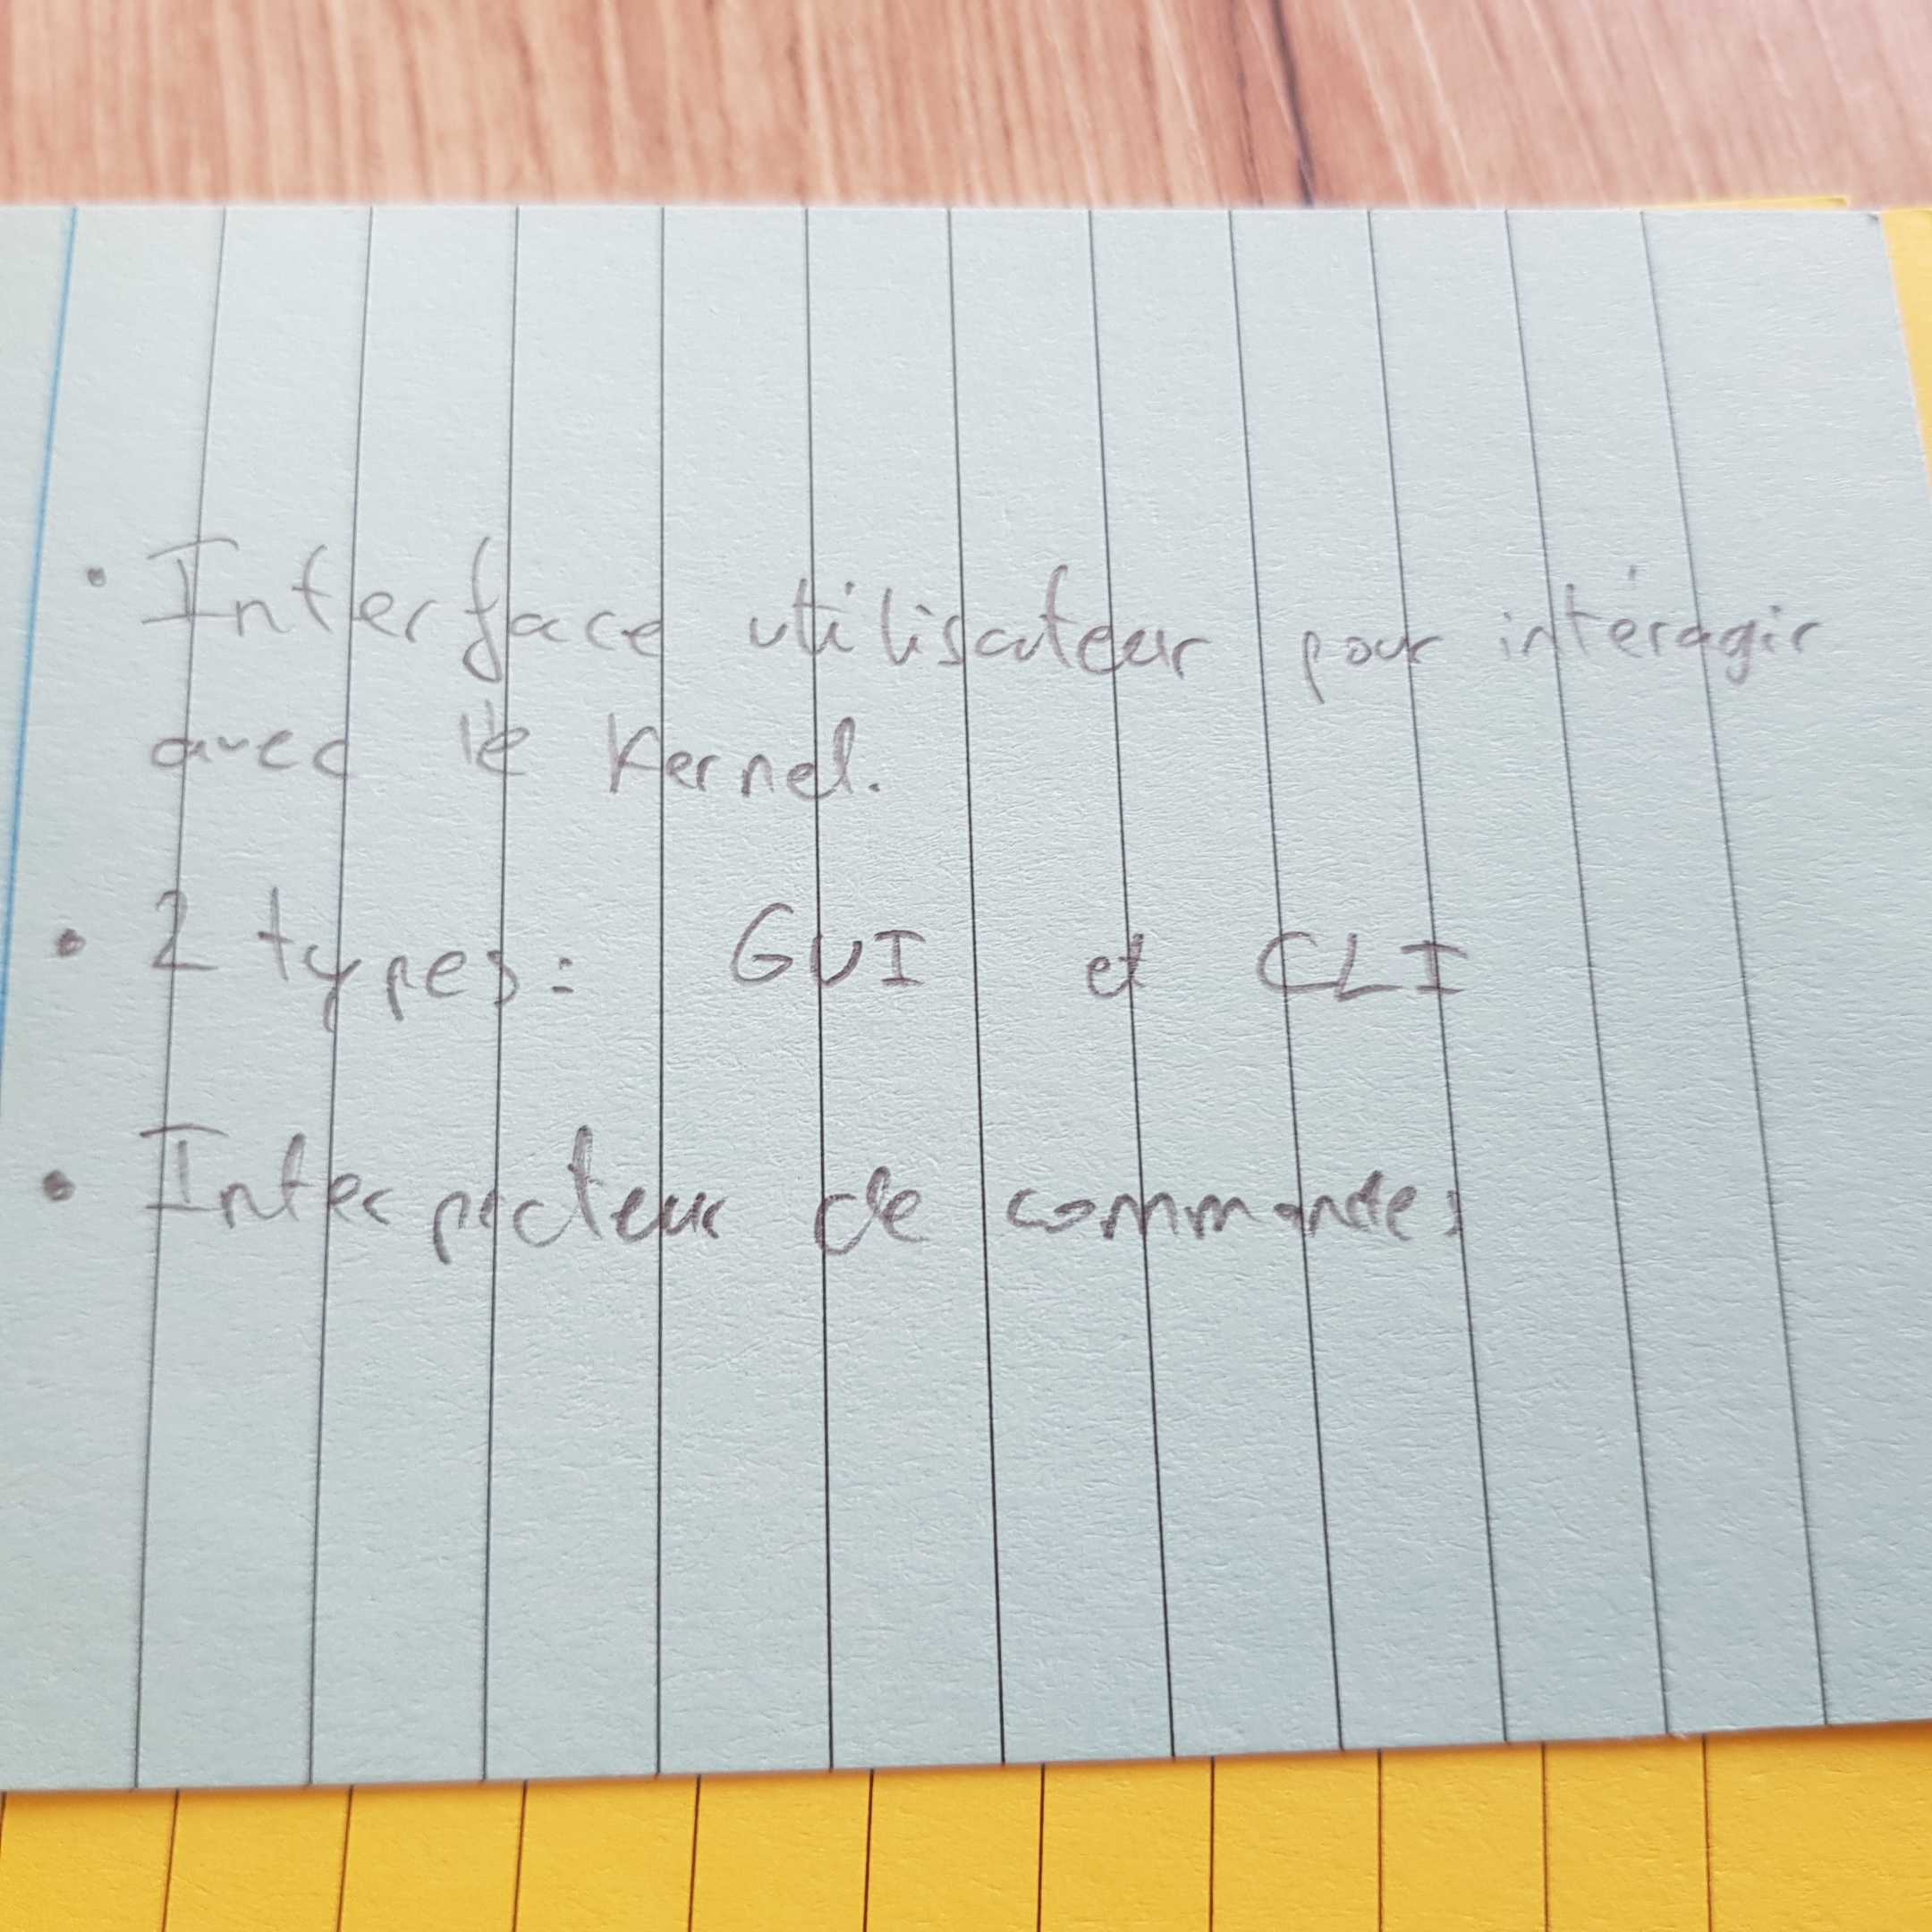 • Interface utilisateur pour intéragir
avec le Kernel.
• 2 types: GUI et CLI
• Interpreteur de commandes